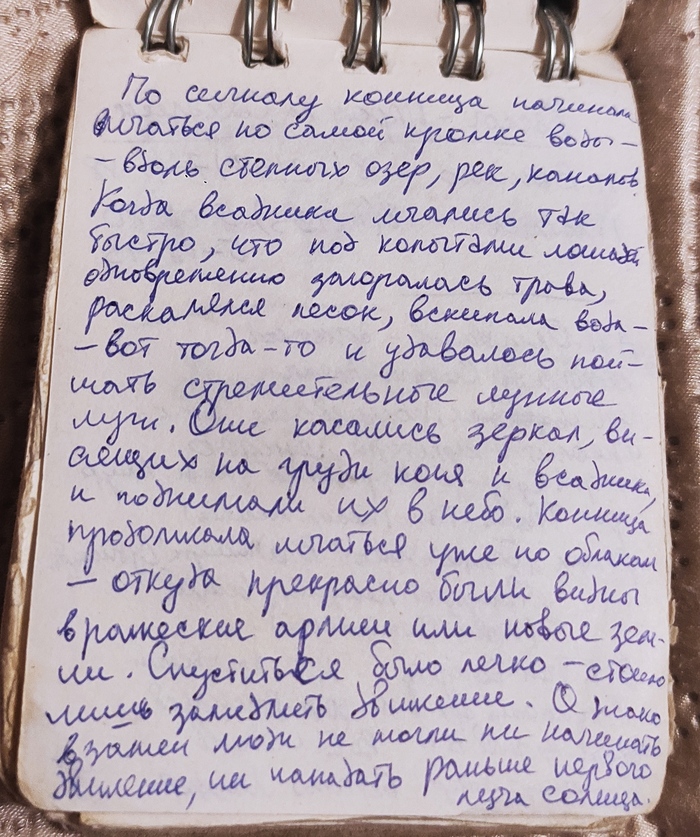 По сигналу конница начинала
мчаться по самой кромке воды —
— вдоль степных озер, рек, каналов.
Когда всадники мчались так
быстро, что под копытами лошадей
одновременно загоралась трава,
раскалялся песок, вскипала вода —
— вот тогда-то и удавалось пой-
мать стремительные лунные
лучи. Они касались зеркал, ви-
сящих на груди коня и всадника,
и поднимали их в небо. Конница
продолжала мчаться уже по облакам
— откуда прекрасно были видны
вражеские армии или новые зем-
ли. Спуститься было легко — стоило
лишь замедлить движение. Однако
взамен люди не могли ни начинать
движение, ни нападать раньше первого
луча солнца.